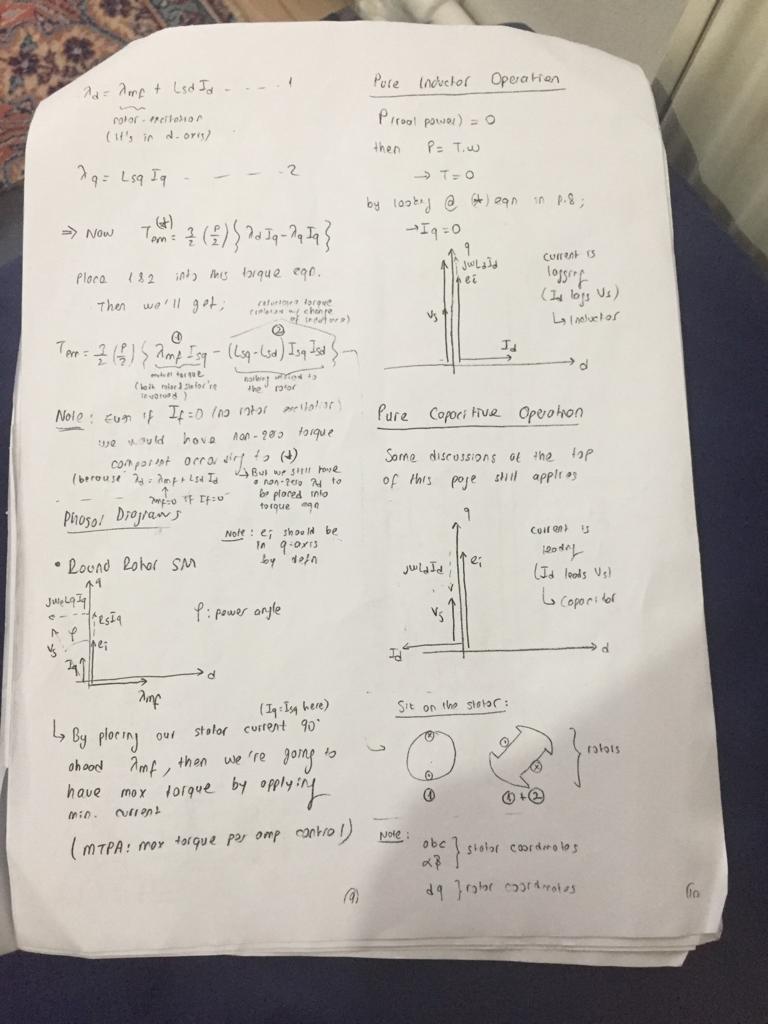 λd = λmf + Lsd Id - - - - 1
rotor-excitation
(It's in d-axis)
λq = Lsq Iq - — — - 2
⇒ Now Tem(*) = 3/2 (P/2) { λd Iq - λq Iq }
Place 1&2 into this torque eqn.
Then we'll get;
reluctance torque
of inductance)
① ②
Tem = 3/2 (P/2) { λmf Isq - (Lsq - Lsd) Isq Isd }
mutual torque
(both rotor & stator're
involved)
nothing related to
the rotor
Note: Even if If=0 (no rotor excitation)
we would have non-zero torque
component according to (*)
(because λd = λmf + Lsd Id
λmf=0 if If=0
↳ But we still have
a non-zero λd to
be placed into
torque eqn
Phasor Diagrams
Note: ei should be
in q-axis
by defn
• Round Rotor SM
q
jωeLqIq
rsIq
φ
Vs
ei
Iq
d
λmf
φ: power angle
(Iq = Isq here)
↳ By placing our stator current 90°
ahead λmf, then we're going to
have max torque by applying
min. current
(MTPA: max torque per amp control)
(9)
Pure Inductor Operation
P(real power) = 0
then P = T.ω
→ T = 0
by looking @ (*) eqn in p.8;
→ Iq = 0
q
jωLdId
ei
Vs
Id
d
current is
lagging
(Id lags Vs)
↳ Inductor
Pure Capacitive Operation
Same discussions at the top
of this page still applies
q
jωLdId
ei
Vs
Id
d
current is
leading
(Id leads Vs)
↳ capacitor
Sit on the stator:
① ①+② } rotors
Note: abc
αβ } stator coordinates
dq } rotor coordinates
(10